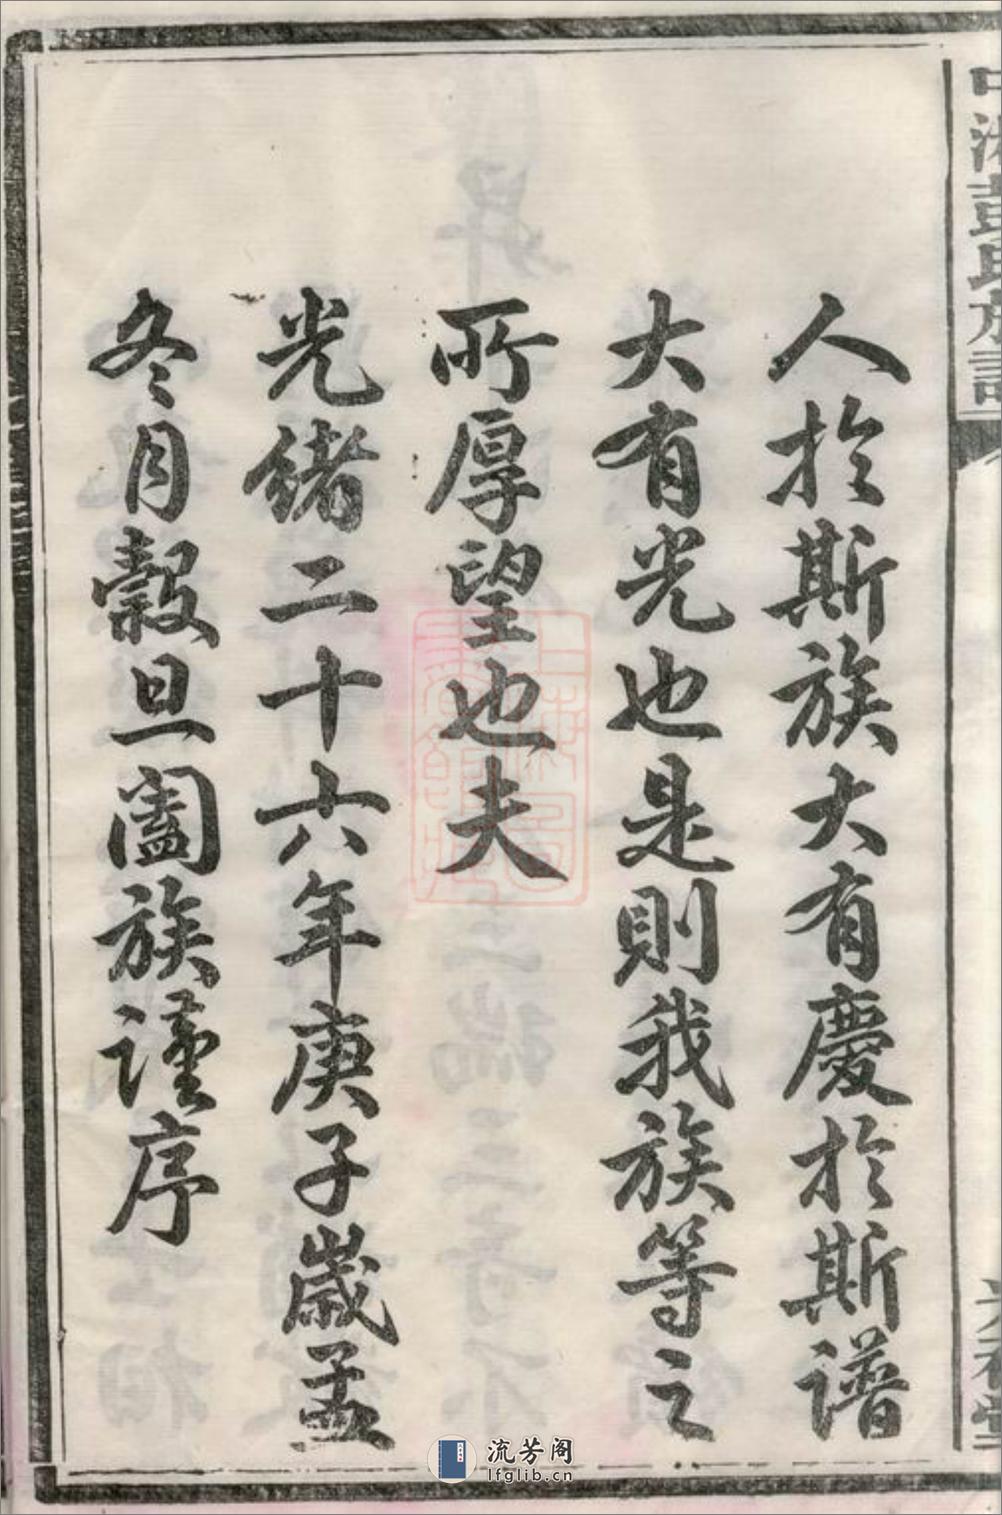 中湘彭氏族譜
人於斯族大有慶於斯譜
大有光也是則我族等之
所厚望也夫
光緒二十六年庚子歲孟
冬月穀旦闔族謹序
流芳阁
lfglib.cn